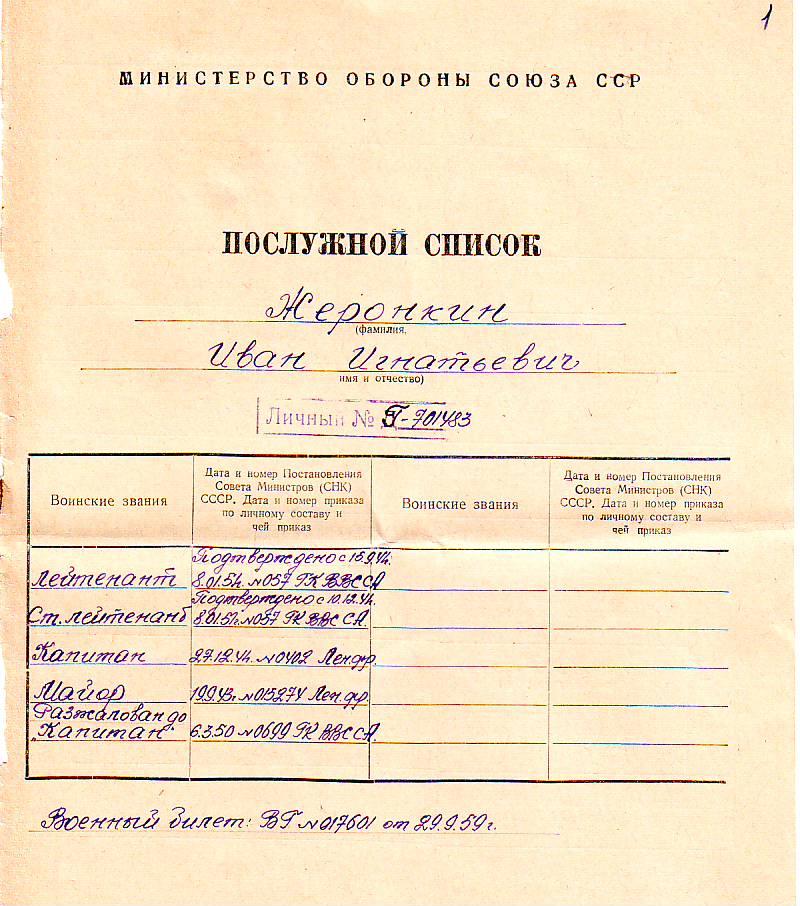 1
МИНИСТЕРСТВО ОБОРОНЫ СОЮЗА ССР
ПОСЛУЖНОЙ СПИСОК
Жеронкин
(фамилия,
Иван Игнатьевич
имя и отчество)
Личный № Г-701483
Воинские звания
Дата и номер Постановления
Совета Министров (СНК)
СССР. Дата и номер приказа
по личному составу и
чей приказ
Воинские звания
Дата и номер Постановления
Совета Министров (СНК)
СССР. Дата и номер приказа
по личному составу и
чей приказ
Подтверждено с 15.9.41г.
Лейтенант 8.01.51г. №057 ГК ВВС СА
Подтверждено с 10.12.41г.
Ст. лейтенант 8.01.51г. №057 ГК ВВС СА.
Капитан 27.12.41г. №0402 Лен.фр.
Майор 19.9.43г. №01527 Лен.фр.
Разжалован до
"Капитан" 6.3.50 №0699 ГК ВВС СА.
Военный билет: ВГ №017601 от 29.9.59г.